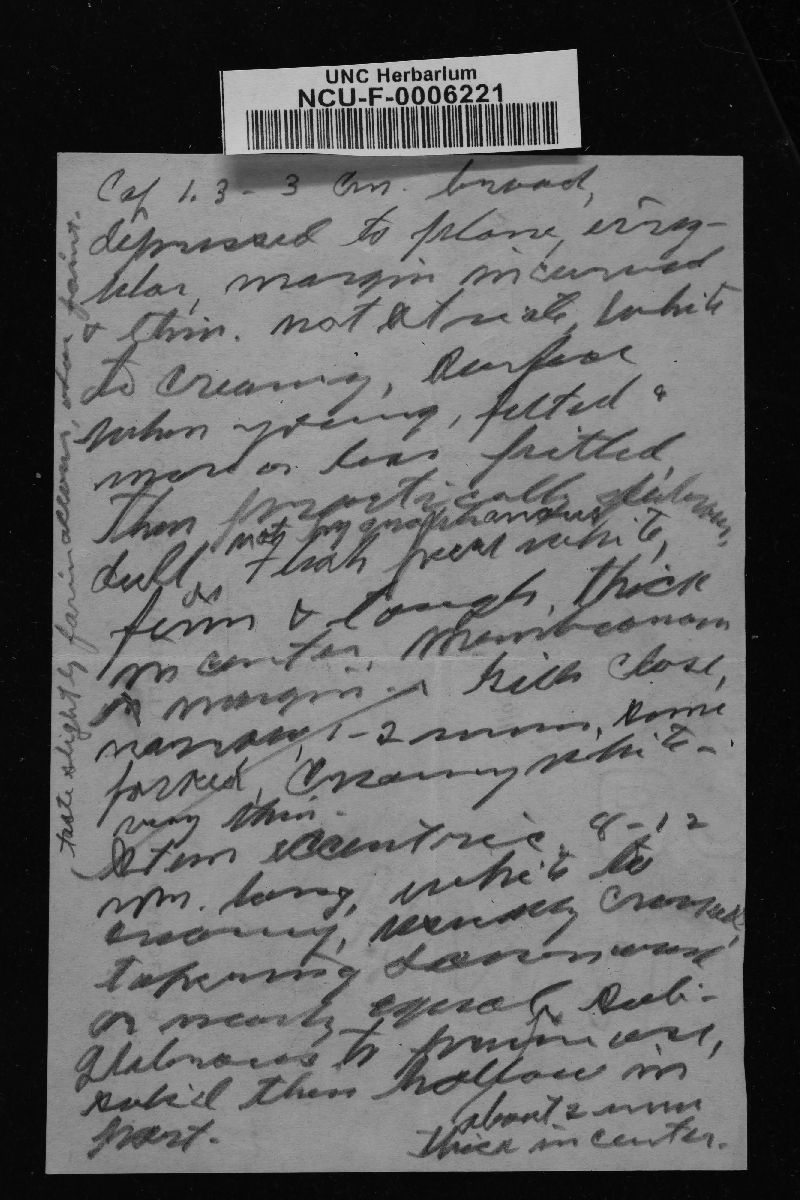 UNC Herbarium
NCU-F-0006221
Cap 1.3 - 3 cm. broad,
depressed to plane, irreg-
ular, margin incurved
& thin. not striate, white
to creamy, surface
when young, felted &
more or less pitted,
then practically glabrous,
dull, not hygrophanous
Flesh pure white,
firm & tough, thick
in center, membranous
on margin. Gills close,
narrow, 1-2 mm, some
forked, creamy white-
very thin.
Stem eccentric, 8-12
mm. long, white to
creamy, usually crooked,
tapering downward
or nearly equal, sub-
glabrous to pruinose,
solid then hollow in
part.
about 2 mm
thick in center.
taste slightly farinaceous, odor faint.